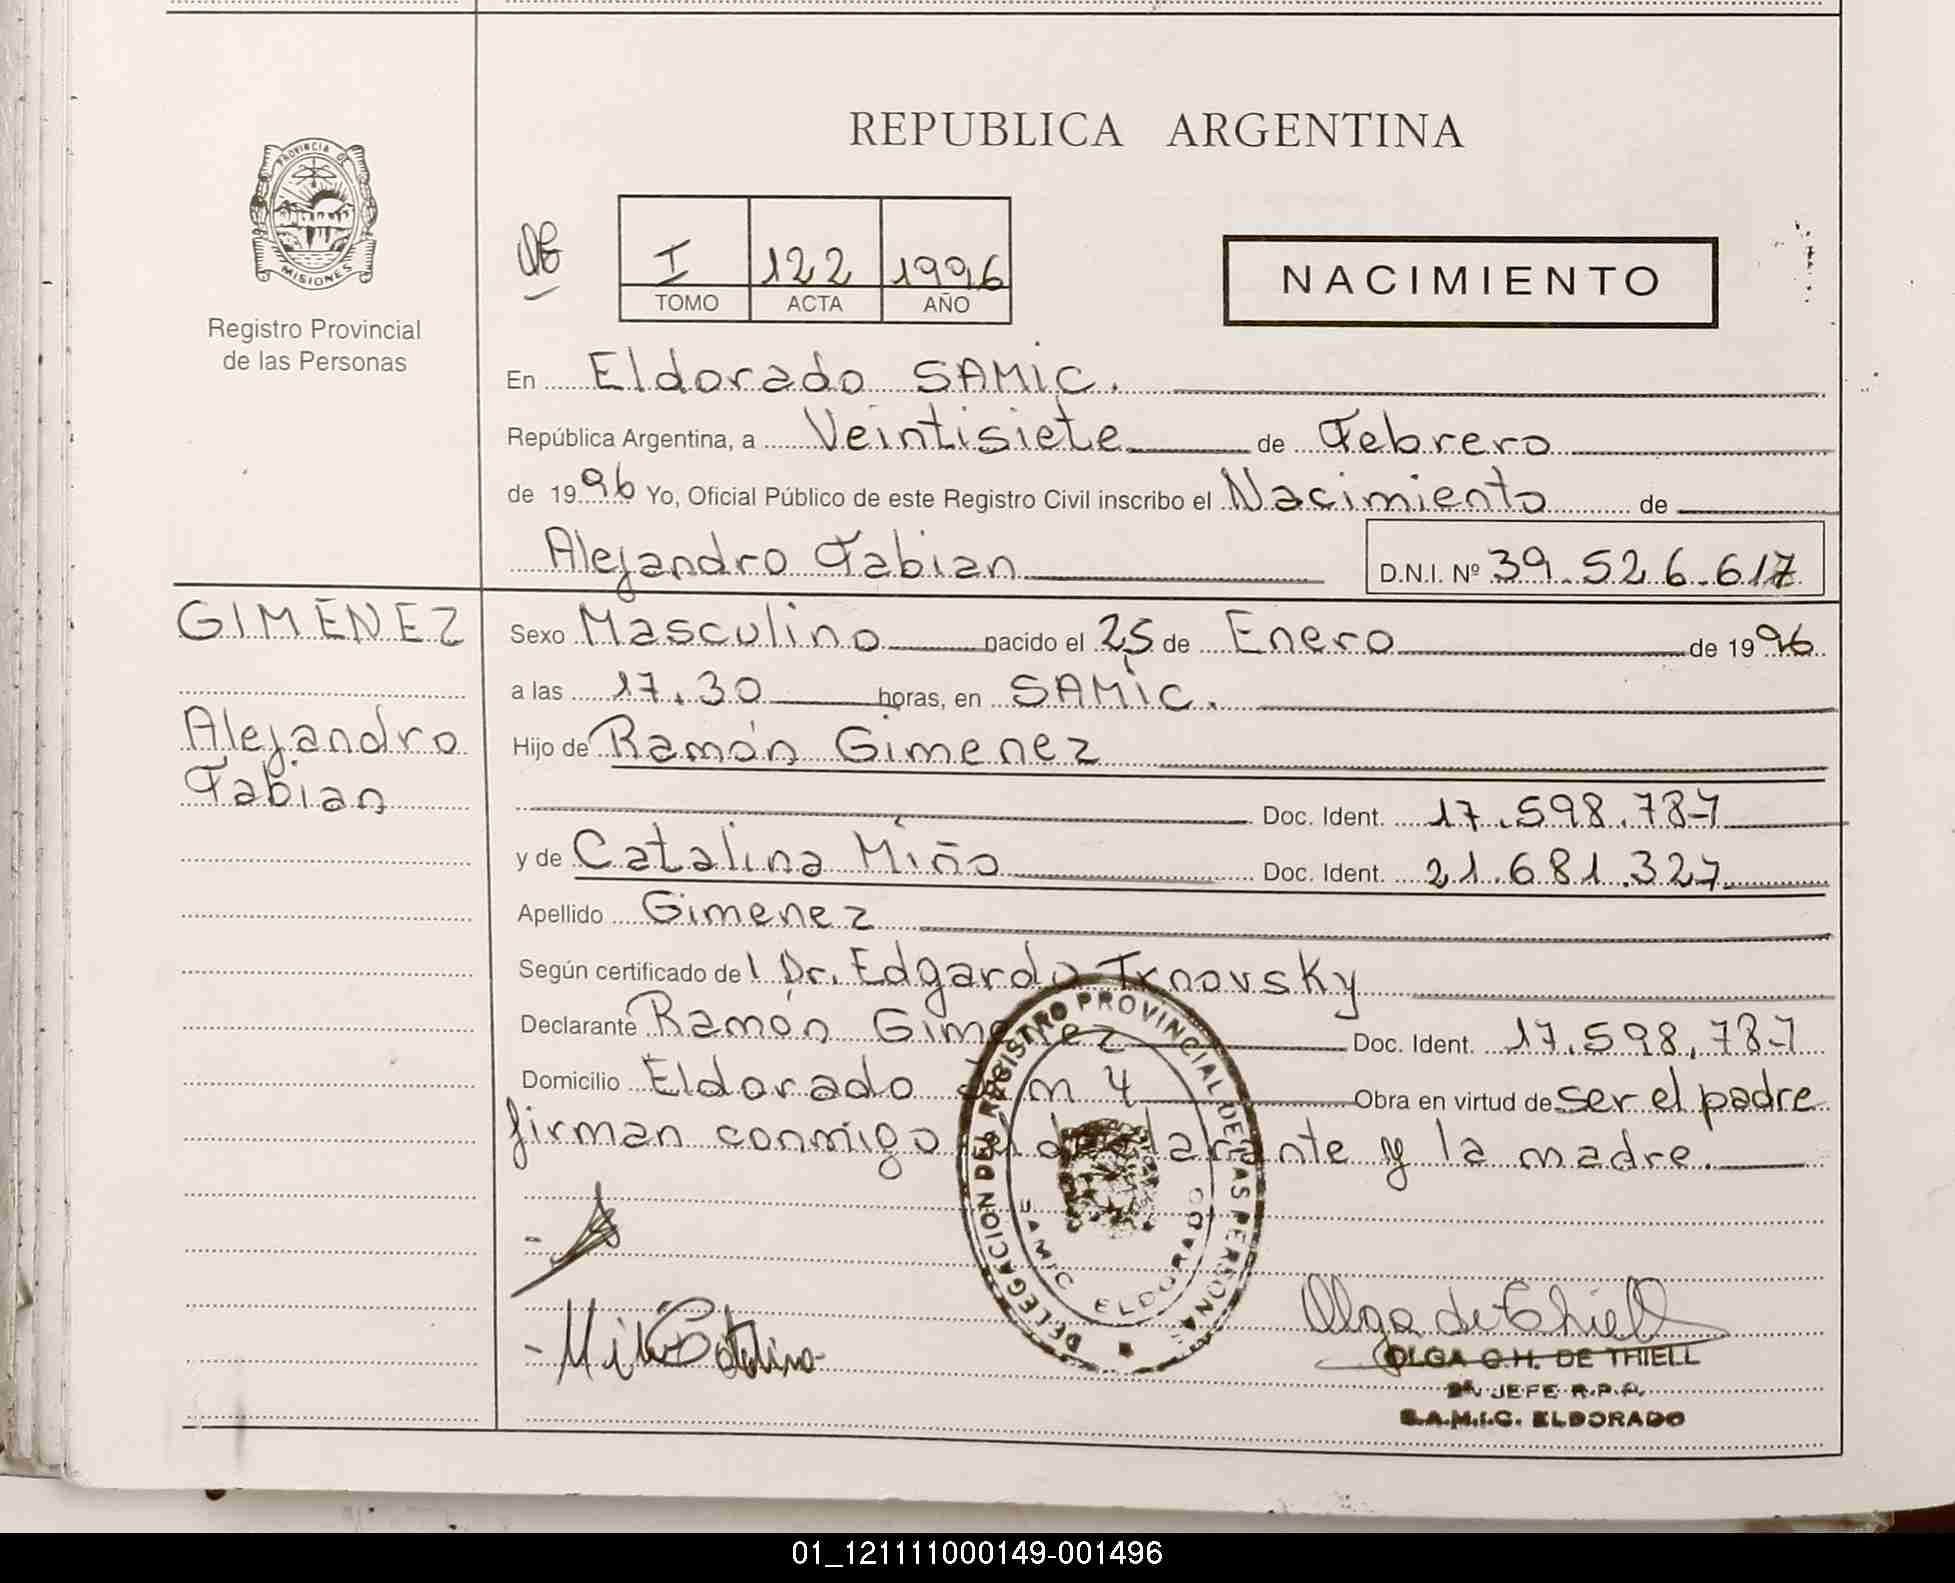 REPUBLICA ARGENTINA
PROVINCIA DE
MISIONES
Registro Provincial
de las Personas
I 122 1996
TOMO ACTA AÑO
NACIMIENTO
En Eldorado SAMIC.
República Argentina, a Veintisiete de Febrero
de 1996 Yo, Oficial Público de este Registro Civil inscribo el Nacimiento de
Alejandro Fabian D.N.I. Nº 39.526.617
GIMENEZ
Alejandro
Fabian
Sexo Masculino nacido el 25 de Enero de 1996
a las 17.30 horas, en SAMIC.
Hijo de Ramón Gimenez
Doc. Ident. 17.598.787
y de Catalina Miño Doc. Ident. 21.681.327
Apellido Gimenez
Según certificado de l Dr. Edgardo Trnovsky
Declarante Ramón Gimenez Doc. Ident. 17.598.787
Domicilio Eldorado km 4 Obra en virtud de ser el padre
firman conmigo el declarante y la madre.
DELEGACION DEL REGISTRO PROVINCIAL DE LAS PERSONAS
SAMIC ELDORADO
Miño Catalina
Olga de Thiell
OLGA G.H. DE THIELL
JEFE R.P.P.
S.A.M.I.C. ELDORADO
01_121111000149-001496